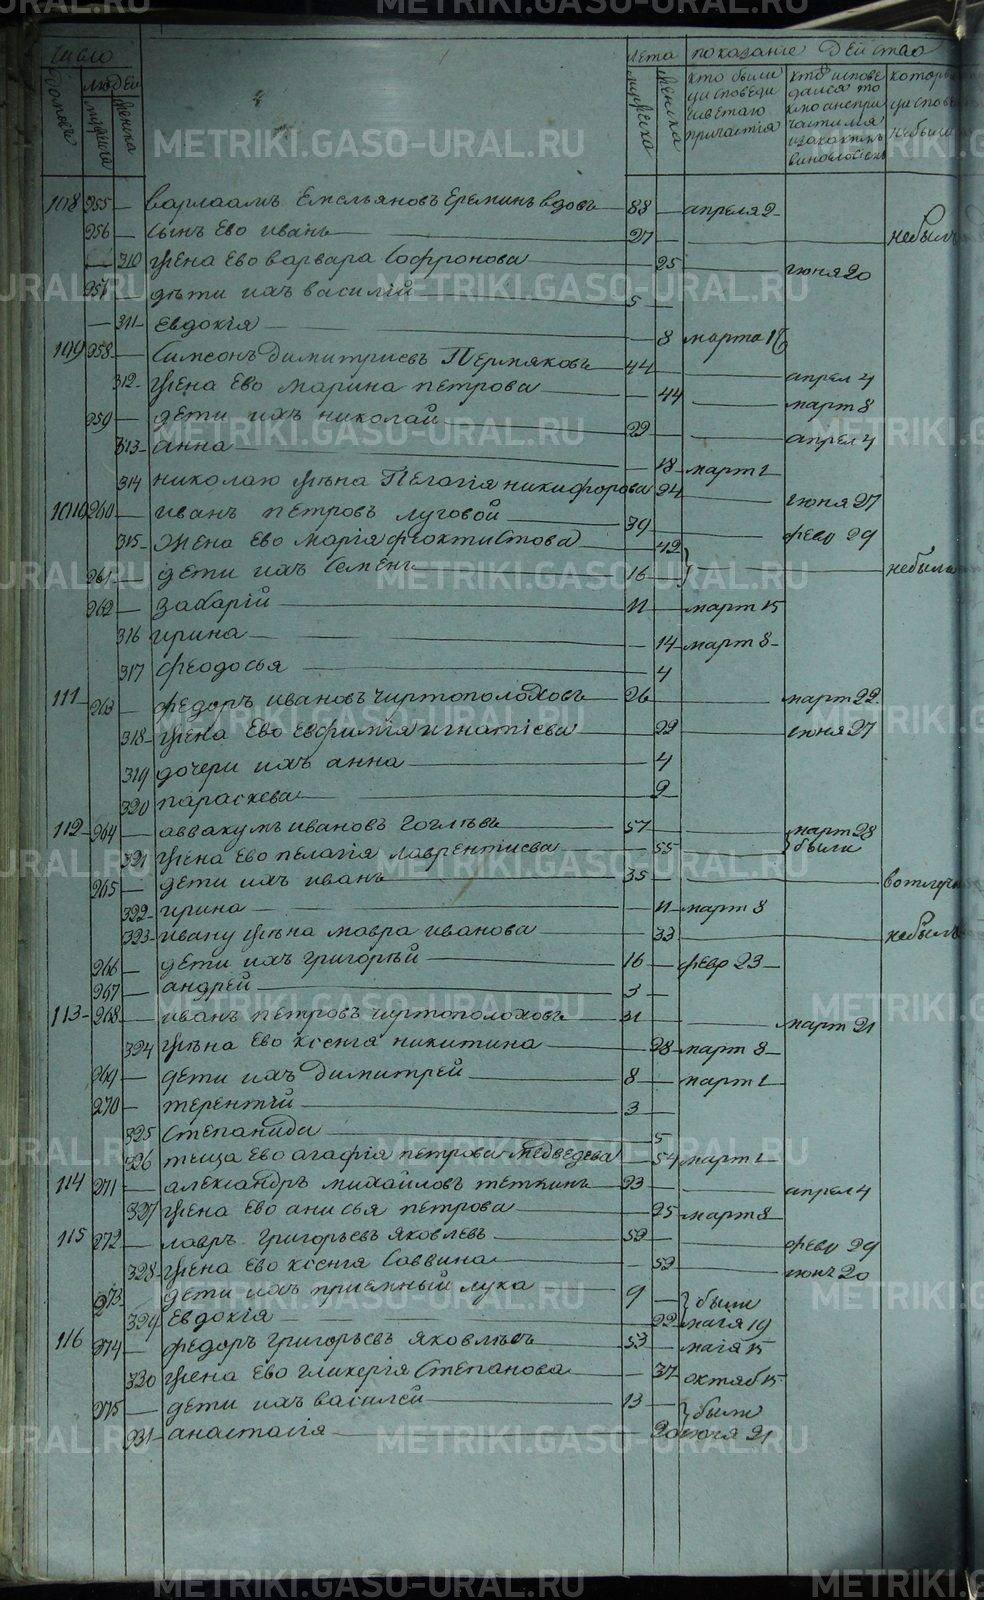 число
людей
домовъ
мужеска
женска
лета
мужеска
женска
показание действо
кто были
у исповеди
и святаго
причастiя
кто испове
дался то
кмо а непри
частился
и за какимъ
которы
у испов
небыли
108 255 — варлаамъ Емельяновъ Ереминъ вдовъ 88 — апреля 2
256 — сынъ Ево иванъ 27 — небылъ
210 жена Ево варвара Софронова 25 июня 20
257 — дѣти ихъ василiй 5 —
311 Евдокiя — 8 марта 16
109 258 — Симеонъ Димитриевъ Пермяковъ 44 — апрел 4
312 жена Ево марина петрова — 44 март 8
259 — дети ихъ николай 22 апрел 4
313 анна — 18 март 1
314 николаю жена Пелагiя никифорова 24 июня 27
1010 260 — иванъ петровъ луговой 39 — февр 29
315 Жена Ево марiя феоктистова 42
261 — дети ихъ Семенъ 16 — небыла
262 — захарiй 11 — март 15
316 ирина — 14 март 8
317 феодосья — 4
111 263 — федоръ ивановъ чиртополоховъ 26 — март 22
318 жена Ево евфимiя игнатiева 22 июня 27
319 дочери ихъ анна — 4
320 параскева — 2
112 264 — аввакумъ ивановъ 57 — март 28
321 жена Ево пелагiя лаврентиева 55 были
265 — дети ихъ иванъ 35 — вотлуч
322 ирина — 11 март 8
323 ивану жена мавра иванова — 33 небылъ
266 — дети ихъ григорѣй 16 — февр 23
267 — андрей 3 —
113 268 — иванъ петровъ чиртополоховъ 31 март 21
324 жѣна Ево ксенiя никитина — 28 март 8
269 — дети ихъ Димитрей 8 — март 1
270 — терентѣй 3 —
325 степанида — 5
326 теща Ево агафiя петрова медведева — 54 март 1
114 271 — александръ михайловъ теткинъ 23 — апрел 4
327 жена Ево анисья петрова — 25 март 8
115 272 — лавръ григорьевъ яковлевъ 52 — февр 29
328 жена Ево ксенiя Саввина — 52 июн 20
273 дети ихъ приемный лука 9 — были
329 Евдокiя — 22 маiя 19
116 274 — федоръ григорьевъ яковлевъ 53 — маiя 15
330 жена Ево гликерiя Степанова — 37 октяб 15
275 — дети ихъ василей 13 — были
331 анастасiя — 20 июня 21
METRIKI.GASO-URAL.RU